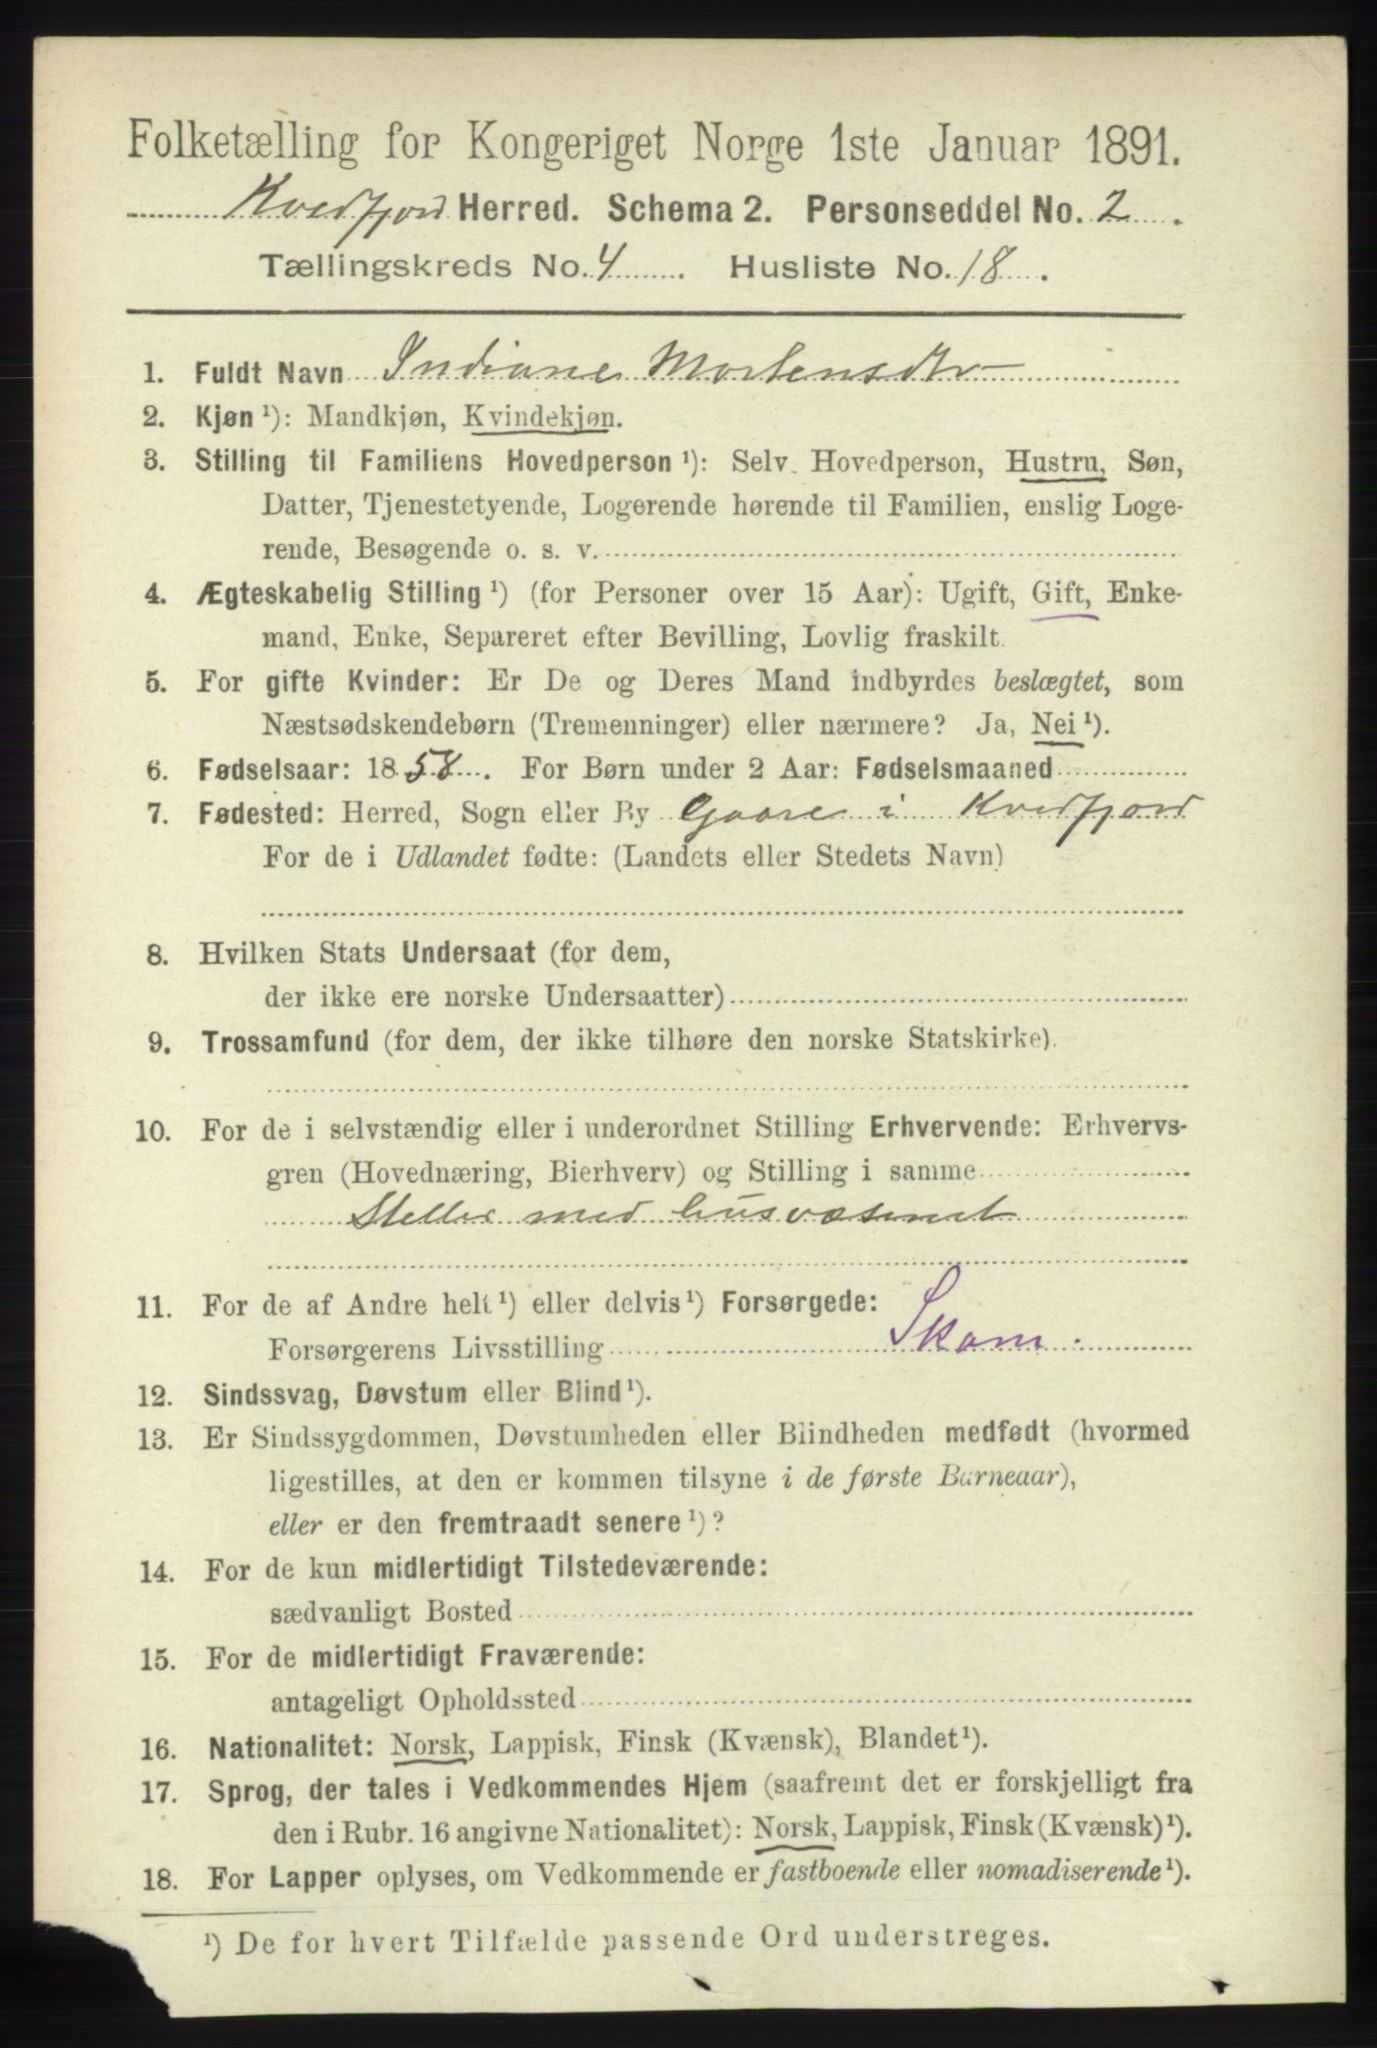 Folketælling for Kongeriget Norge 1ste Januar 1891.
Kvedfjord Herred. Schema 2. Personseddel No. 2.
Tællingskreds No. 4. Husliste No. 18.
1. Fuldt Navn Indiane Mortensdtr
2. Kjøn ¹): Mandkjøn, Kvindekjøn.
3. Stilling til Familiens Hovedperson ¹): Selv Hovedperson, Hustru, Søn,
Datter, Tjenestetyende, Logerende hørende til Familien, enslig Loge-
rende, Besøgende o. s. v.
4. Ægteskabelig Stilling ¹) (for Personer over 15 Aar): Ugift, Gift, Enke-
mand, Enke, Separeret efter Bevilling, Lovlig fraskilt.
5. For gifte Kvinder: Er De og Deres Mand indbyrdes beslægtet, som
Næstsødskendebørn (Tremenninger) eller nærmere? Ja, Nei ¹).
6. Fødselsaar: 1858. For Børn under 2 Aar: Fødselsmaaned
7. Fødested: Herred, Sogn eller By Gaare i Kvedfjord
For de i Udlandet fødte: (Landets eller Stedets Navn)
8. Hvilken Stats Undersaat (for dem,
der ikke ere norske Undersaatter)
9. Trossamfund (for dem, der ikke tilhøre den norske Statskirke).
10. For de i selvstændig eller i underordnet Stilling Erhvervende: Erhvervs-
gren (Hovednæring, Bierhverv) og Stilling i samme
Steller med husvæsenet
11. For de af Andre helt ¹) eller delvis ¹) Forsørgede:
Forsørgerens Livsstilling Skom.
12. Sindssvag, Døvstum eller Blind ¹).
13. Er Sindssygdommen, Døvstumheden eller Blindheden medfødt (hvormed
ligestilles, at den er kommen tilsyne i de første Barneaar),
eller er den fremtraadt senere ¹)?
14. For de kun midlertidigt Tilstedeværende:
sædvanligt Bosted
15. For de midlertidigt Fraværende:
antageligt Opholdssted
16. Nationalitet: Norsk, Lappisk, Finsk (Kvænsk), Blandet ¹).
17. Sprog, der tales i Vedkommendes Hjem (saafremt det er forskjelligt fra
den i Rubr. 16 angivne Nationalitet): Norsk, Lappisk, Finsk (Kvænsk) ¹).
18. For Lapper oplyses, om Vedkommende er fastboende eller nomadiserende ¹).
¹) De for hvert Tilfælde passende Ord understreges.